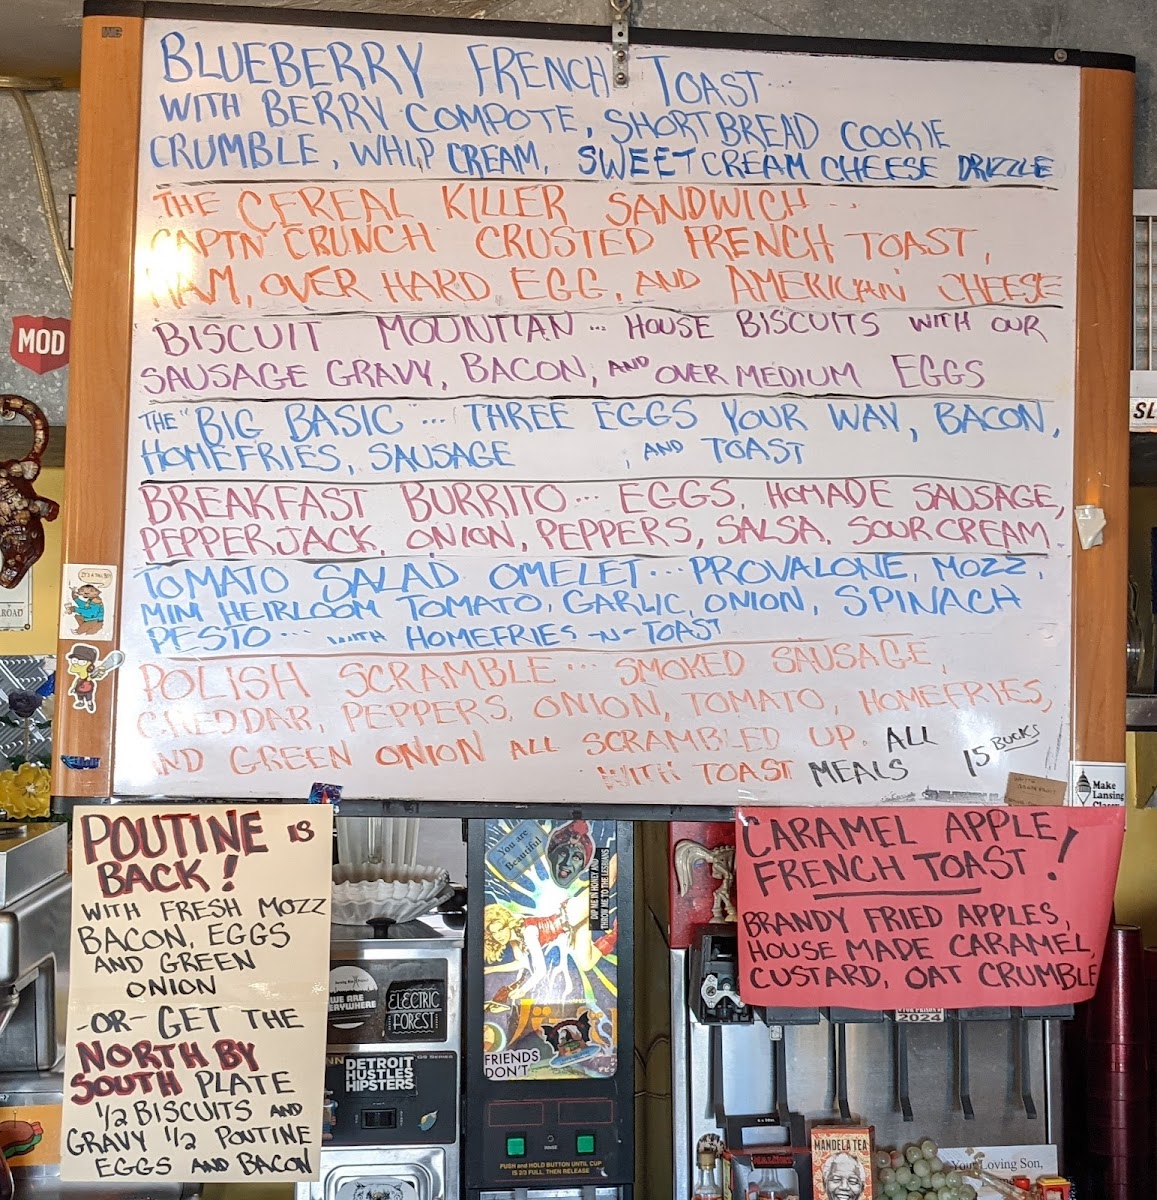 BLUEBERRY FRENCH TOAST
WITH BERRY COMPOTE, SHORTBREAD COOKIE
CRUMBLE, WHIP CREAM, SWEET CREAM CHEESE DRIZZLE
THE CEREAL KILLER SANDWICH...
CAPTN CRUNCH CRUSTED FRENCH TOAST,
HAM, OVER HARD EGG, AND AMERICAN CHEESE
BISCUIT MOUNTIAN... HOUSE BISCUITS WITH OUR
SAUSAGE GRAVY, BACON, AND OVER MEDIUM EGGS
THE "BIG BASIC"... THREE EGGS YOUR WAY, BACON,
HOMEFRIES, SAUSAGE , AND TOAST
BREAKFAST BURRITO... EGGS, HOMADE SAUSAGE,
PEPPERJACK, ONION, PEPPERS, SALSA, SOUR CREAM
TOMATO SALAD OMELET... PROVALONE, MOZZ,
MINI HEIRLOOM TOMATO, GARLIC, ONION, SPINACH
PESTO... WITH HOMEFRIES -N- TOAST
POLISH SCRAMBLE... SMOKED SAUSAGE,
CHEDDAR, PEPPERS, ONION, TOMATO, HOMEFRIES,
AND GREEN ONION ALL SCRAMBLED UP. ALL
WITH TOAST MEALS 15 BUCKS
MOD
SL
Make
Lansing
POUTINE IS
BACK!
WITH FRESH MOZZ
BACON, EGGS
AND GREEN
ONION
-OR- GET THE
NORTH BY
SOUTH PLATE
1/2 BISCUITS AND
GRAVY 1/2 POUTINE
EGGS AND BACON
You are
Beautiful
DIP ME IN HONEY AND
THROW ME TO THE LESBIANS
WE ARE
EVERYWHERE
ELECTRIC
FOREST
DETROIT
HUSTLES
HIPSTERS
FRIENDS
DON'T
PUSH and HOLD BUTTON UNTIL CUP
IS 2/3 FULL, THEN RELEASE
CARAMEL APPLE
FRENCH TOAST!
BRANDY FRIED APPLES,
HOUSE MADE CARAMEL,
CUSTARD, OAT CRUMBLE
2024
MANDELA TEA
Your Loving Son,